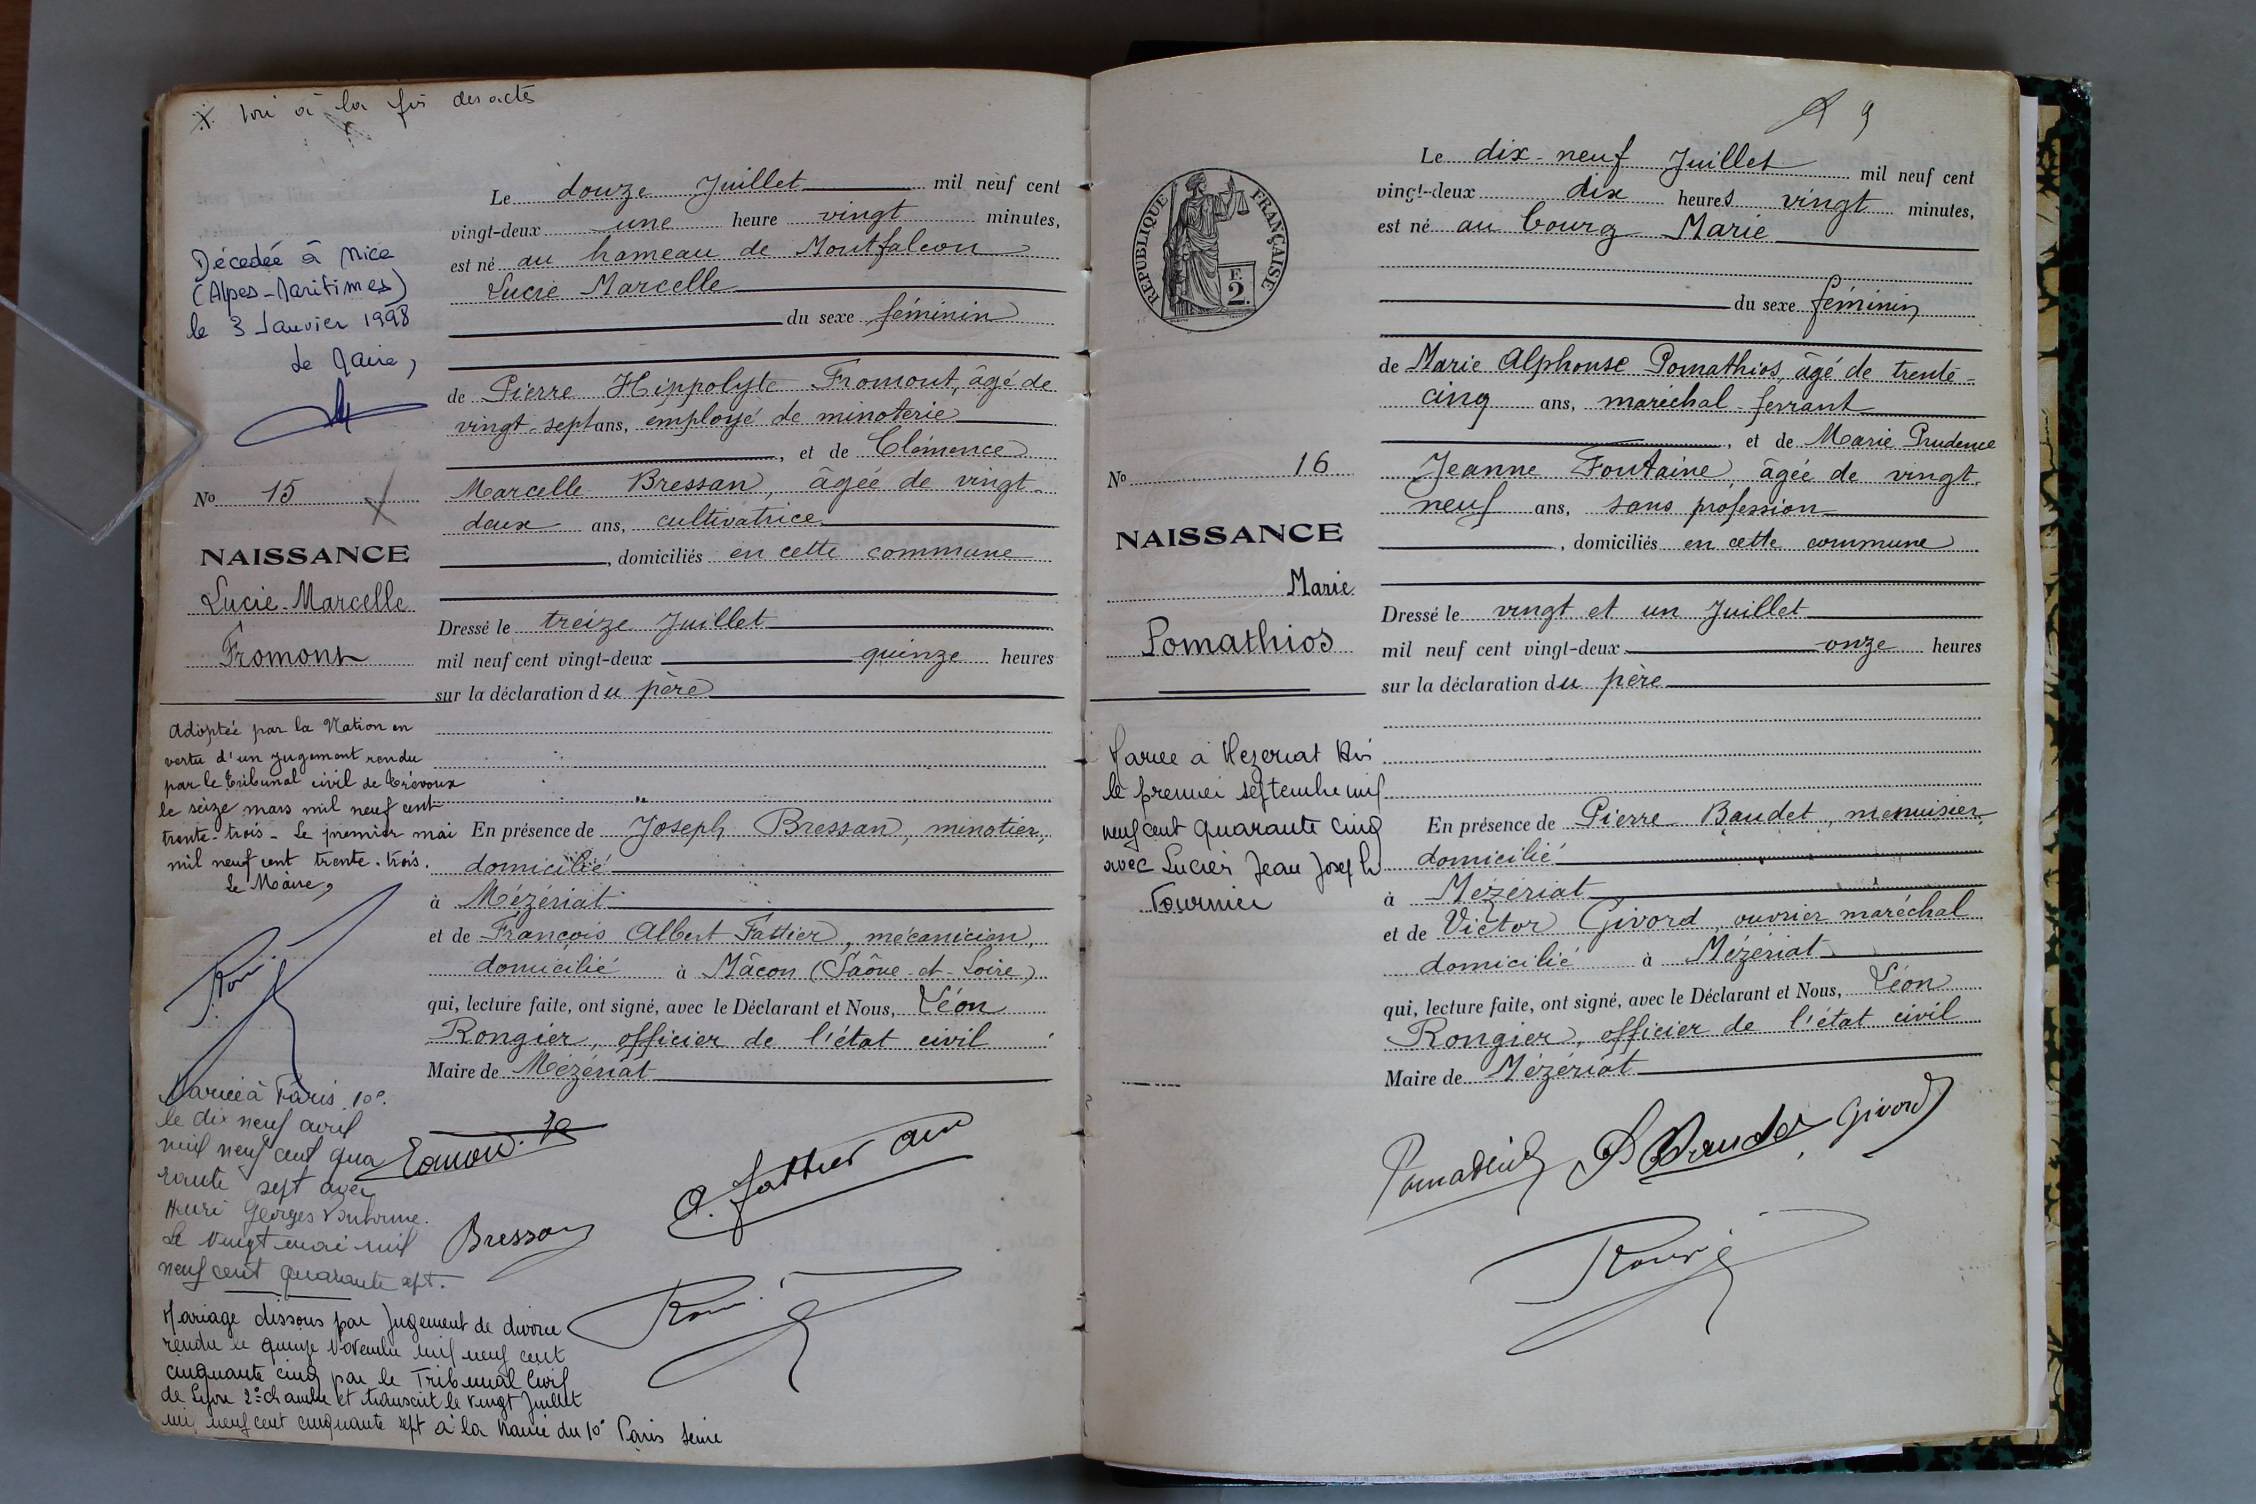 à la fin des actes
Le douze Juillet mil neuf cent
vingt-deux une heure vingt minutes,
est né au hameau de Montfalcon
Lucie Marcelle
du sexe féminin
de Pierre Hippolyte Fromont, âgé de
vingt-sept ans, employé de minoterie
, et de Clémence
Marcelle Bressan, âgée de vingt-
deux ans, cultivatrice
, domiciliés en cette commune
Dressé le treize Juillet
mil neuf cent vingt-deux quinze heures
sur la déclaration du père
En présence de Joseph Bressan, minotier,
domicilié
à Mézériat
et de François Albert Fattier, mécanicien,
domicilié à Mâcon (Saône-et-Loire)
qui, lecture faite, ont signé, avec le Déclarant et Nous, Léon
Rongier, officier de l'état civil
Maire de Mézériat
Décedée à Nice
(Alpes-Maritimes)
le 3 Janvier 1998
Le Maire,
No 15
NAISSANCE
Lucie-Marcelle
Fromont
Adoptée par la Nation en
vertu d'un jugement rendu
par le Tribunal civil de Trévoux
le seize mars mil neuf cent
trente-trois - Le premier mai
mil neuf cent trente-trois.
Le Maire,
Mariée à Paris 10e
le dix neuf avril
mil neuf cent qua
rante sept avec
Henri Georges
Le vingt mai mil
neuf cent quarante sept.
Mariage dissous par Jugement de divorce
rendu le quinze Novembre mil neuf cent
cinquante cinq par le Tribunal Civil
de Lyon 2e chambre et transcrit le vingt Juillet
mil neuf cent cinquante sept à la Mairie du 10e Paris Seine
Bressan
A. Fattier
9
REPUBLIQUE FRANÇAISE
F.
2.
Le dix-neuf Juillet mil neuf cent
vingt-deux dix heures vingt minutes,
est né au bourg Marie
du sexe féminin
de Marie Alphonse Pomathios, âgé de trente-
cinq ans, maréchal ferrant
, et de Marie Prudence
Jeanne Fontaine, âgée de vingt-
neuf ans, sans profession
, domiciliés en cette commune
Dressé le vingt et un Juillet
mil neuf cent vingt-deux onze heures
sur la déclaration du père
En présence de Pierre Baudet, menuisier,
domicilié
à Mézériat
et de Victor Givord, ouvrier maréchal
domicilié à Mézériat
qui, lecture faite, ont signé, avec le Déclarant et Nous, Léon
Rongier, officier de l'état civil
Maire de Mézériat
No 16
NAISSANCE
Marie
Pomathios
Mariée à Mezeriat Ain
le premier septembre mil
neuf cent quarante cinq
avec Lucien Jean Joseph
Fournier
Pomathios
Baudet
Givord